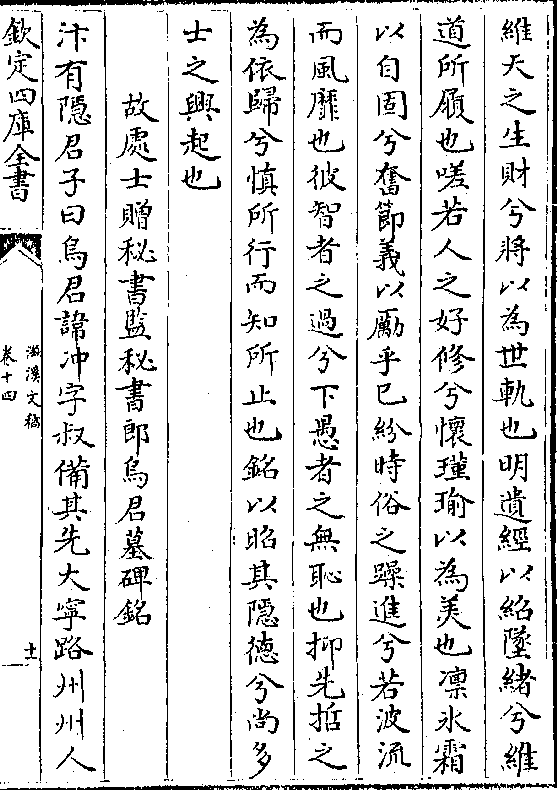 維天之生財兮將以為世軌也明遺經以紹墜緒兮維
道所履也嗟若人之好修兮懷瑾瑜以為美也凛氷霜
以自固兮奮節義以勵乎已紛時俗之躁進兮若波流
而風靡也彼智者之過兮下愚者之無恥也抑先哲之
為依歸兮慎所行而知所止也銘以昭其隱德兮尚多
士之興起也
故處士贈秘書監秘書郎烏君墓碑銘
汴有隱君子曰烏君諱冲字叔備其先大寧路川州人
欽定四庫全書
滋溪文稿
卷十四
十一